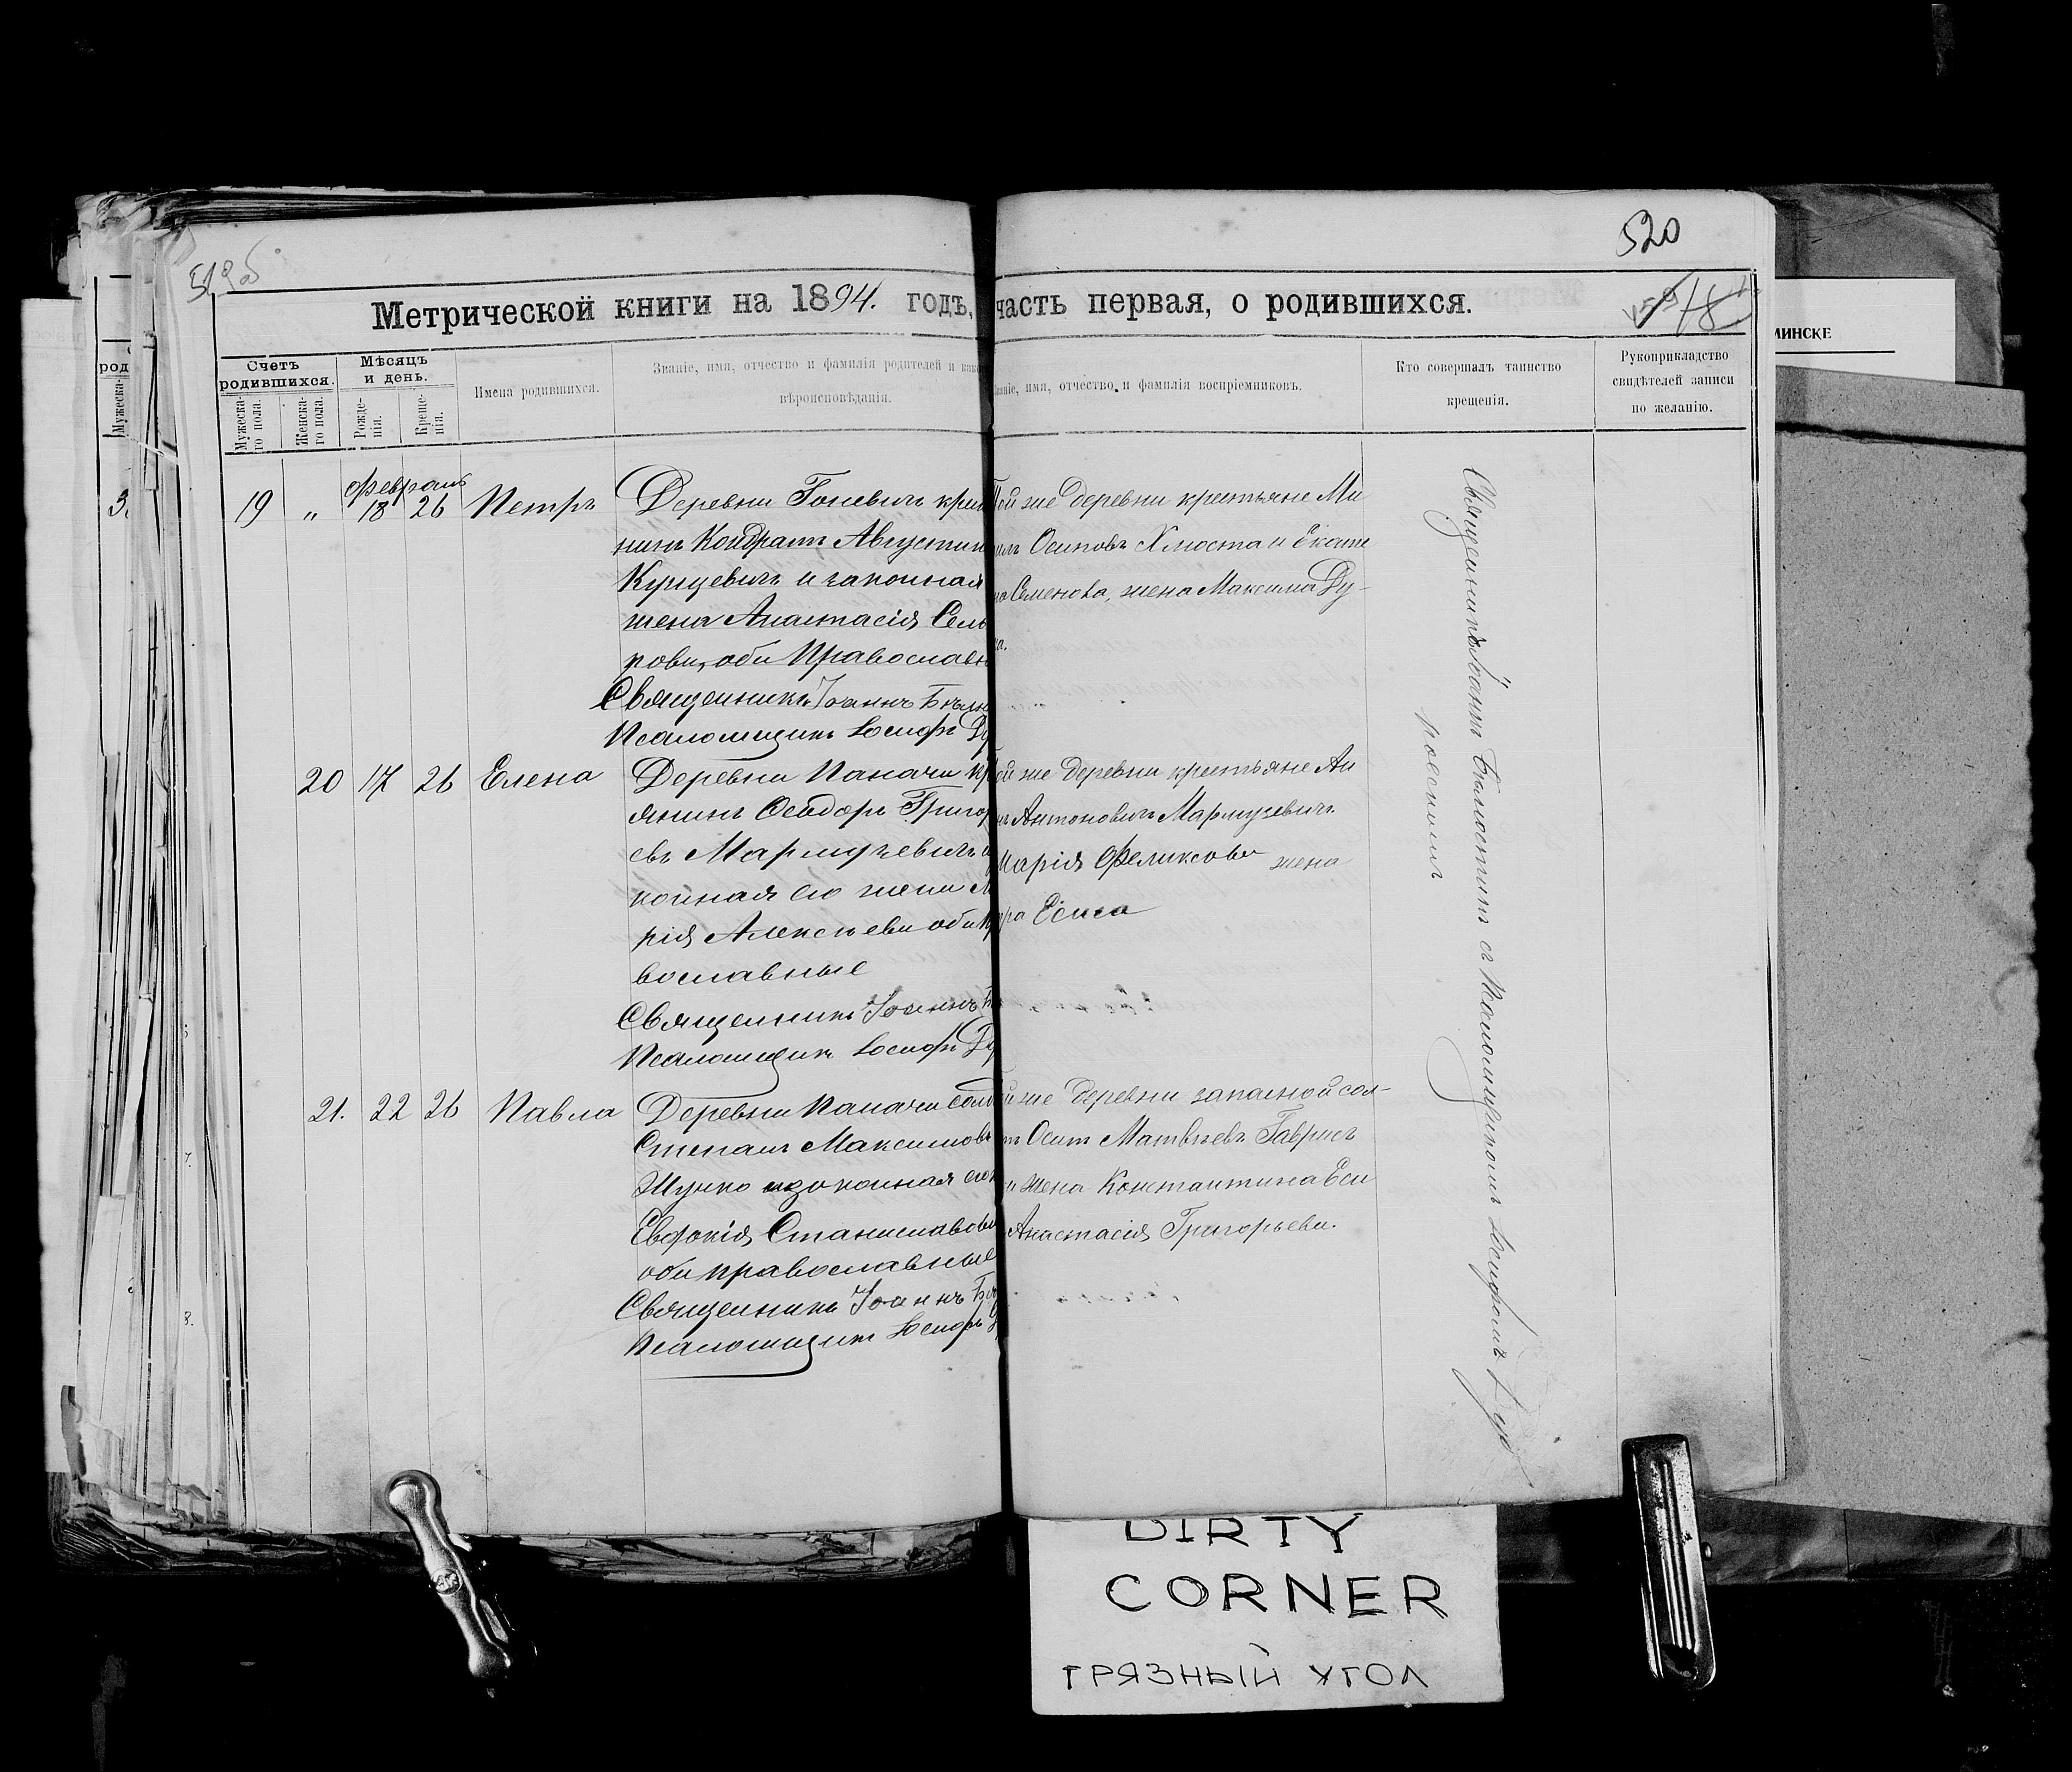 519 об
520
Метрической книги на 1894. годъ, часть первая, о родившихся.
МИНСКЕ
род
Мужеска-
Счетъ родившихся.
Мужеска-го пола.
Женска-го пола.
Мѣсяцъ и день.
Рожде-нія.
Креще-нія.
Имена родившихся.
Званіе, имя, отчество и фамилія родителей и како
вѣроисповѣданія.
Званіе, имя, отчество и фамилія воспріемниковъ.
Кто совершалъ таинство
крещенія.
Рукоприкладство
свидѣтелей записи
по желанію.
февраля
19 „ 18 26 Петръ
Деревни крес
нинъ Кондратъ Августин
Курцевичъ и законная
жена Анастасія
рова, оба Православн
Священникъ Іоаннъ
Псаломщикъ Іосифъ
Той же деревни крестьяне Ми
илъ Осиповъ Хмоста и Екате
на Семенова, жена Максима Ду-
ка.
20 17 26 Елена
Деревни Паначи кр
янинъ Григор
евъ Мармузевичъ и
конная его жена М
рія Алексѣева оба п
вославные
Священникъ Іоаннъ Б
Псаломщикъ Іосифъ
ой же деревни крестьяне Ан
нъ Антоновичъ Мармузевичъ
Марія Феликсова жена
ра Есиса
21. 22 26 Павла
Деревни Паначи солд
Степанъ Максимовъ
Жучко и законная его
Евдокія Станиславова
оба православные
Священникъ Іоаннъ
Псаломщикъ Іосифъ
й же деревни запасной сол-
тъ Осипъ Матвѣевъ Гаврисъ
и жена Константина Еси
Анастасія Григорьева.
Священникъ Іоаннъ съ Псаломщикомъ Іосифомъ
роескимъ
7.
8.
DIRTY
CORNER
ГРЯЗНЫЙ УГОЛ